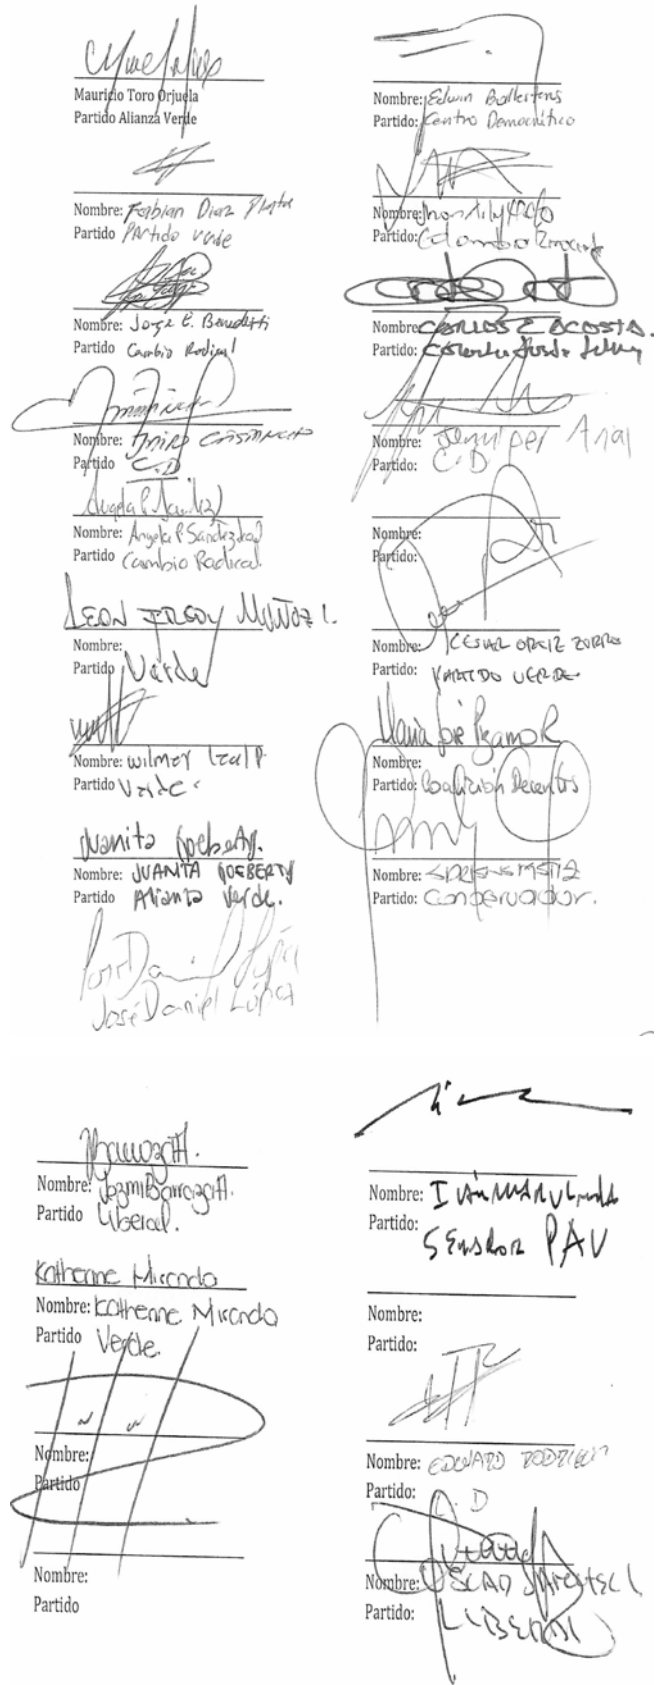 Mauricio Toro Orjuela
Partido Alianza Verde
Nombre: Fabian Diaz Plata
Partido Partido verde
Nombre: Jorge E. Benedetti
Partido Cambio Radical
Nombre: Jairo Cristancho
Partido C.D
Angela P. Sanchez
Nombre: Angela P Sanchez
Partido Cambio Radical.
LEON FREDY MUÑOZ L.
Nombre:
Partido Verde
Nombre: Wilmer Leal P
Partido Verde
Juanita Goebertus.
Nombre: JUANITA GOEBERTUS
Partido Alianza Verde.
José Daniel López
José Daniel López
Nombre: Edwin Ballesteros
Partido: Centro Democrático
Nombre:
Partido: Colombia
Nombre: CARLOS E ACOSTA.
Partido: Colombia Justa Libres
Nombre: Jennifer Arias
Partido: C.D
Nombre:
Partido:
Nombre: CESAR ORTIZ ZORRO
Partido: PARTIDO VERDE
María José Pizarro R
Nombre:
Partido: Coalición Decentes
Nombre:
Partido: Conservador.
Nombre:
Partido Liberal.
Katherine Miranda
Nombre: Katherine Miranda
Partido Verde.
Nombre:
Partido
Nombre:
Partido
Nombre: IVÁN MARULANDA
Partido: SENADOR PAV
Nombre:
Partido:
Nombre: EDWARD RODRIGUEZ
Partido: C. D
Nombre: OSCAR
Partido: LIBERAL